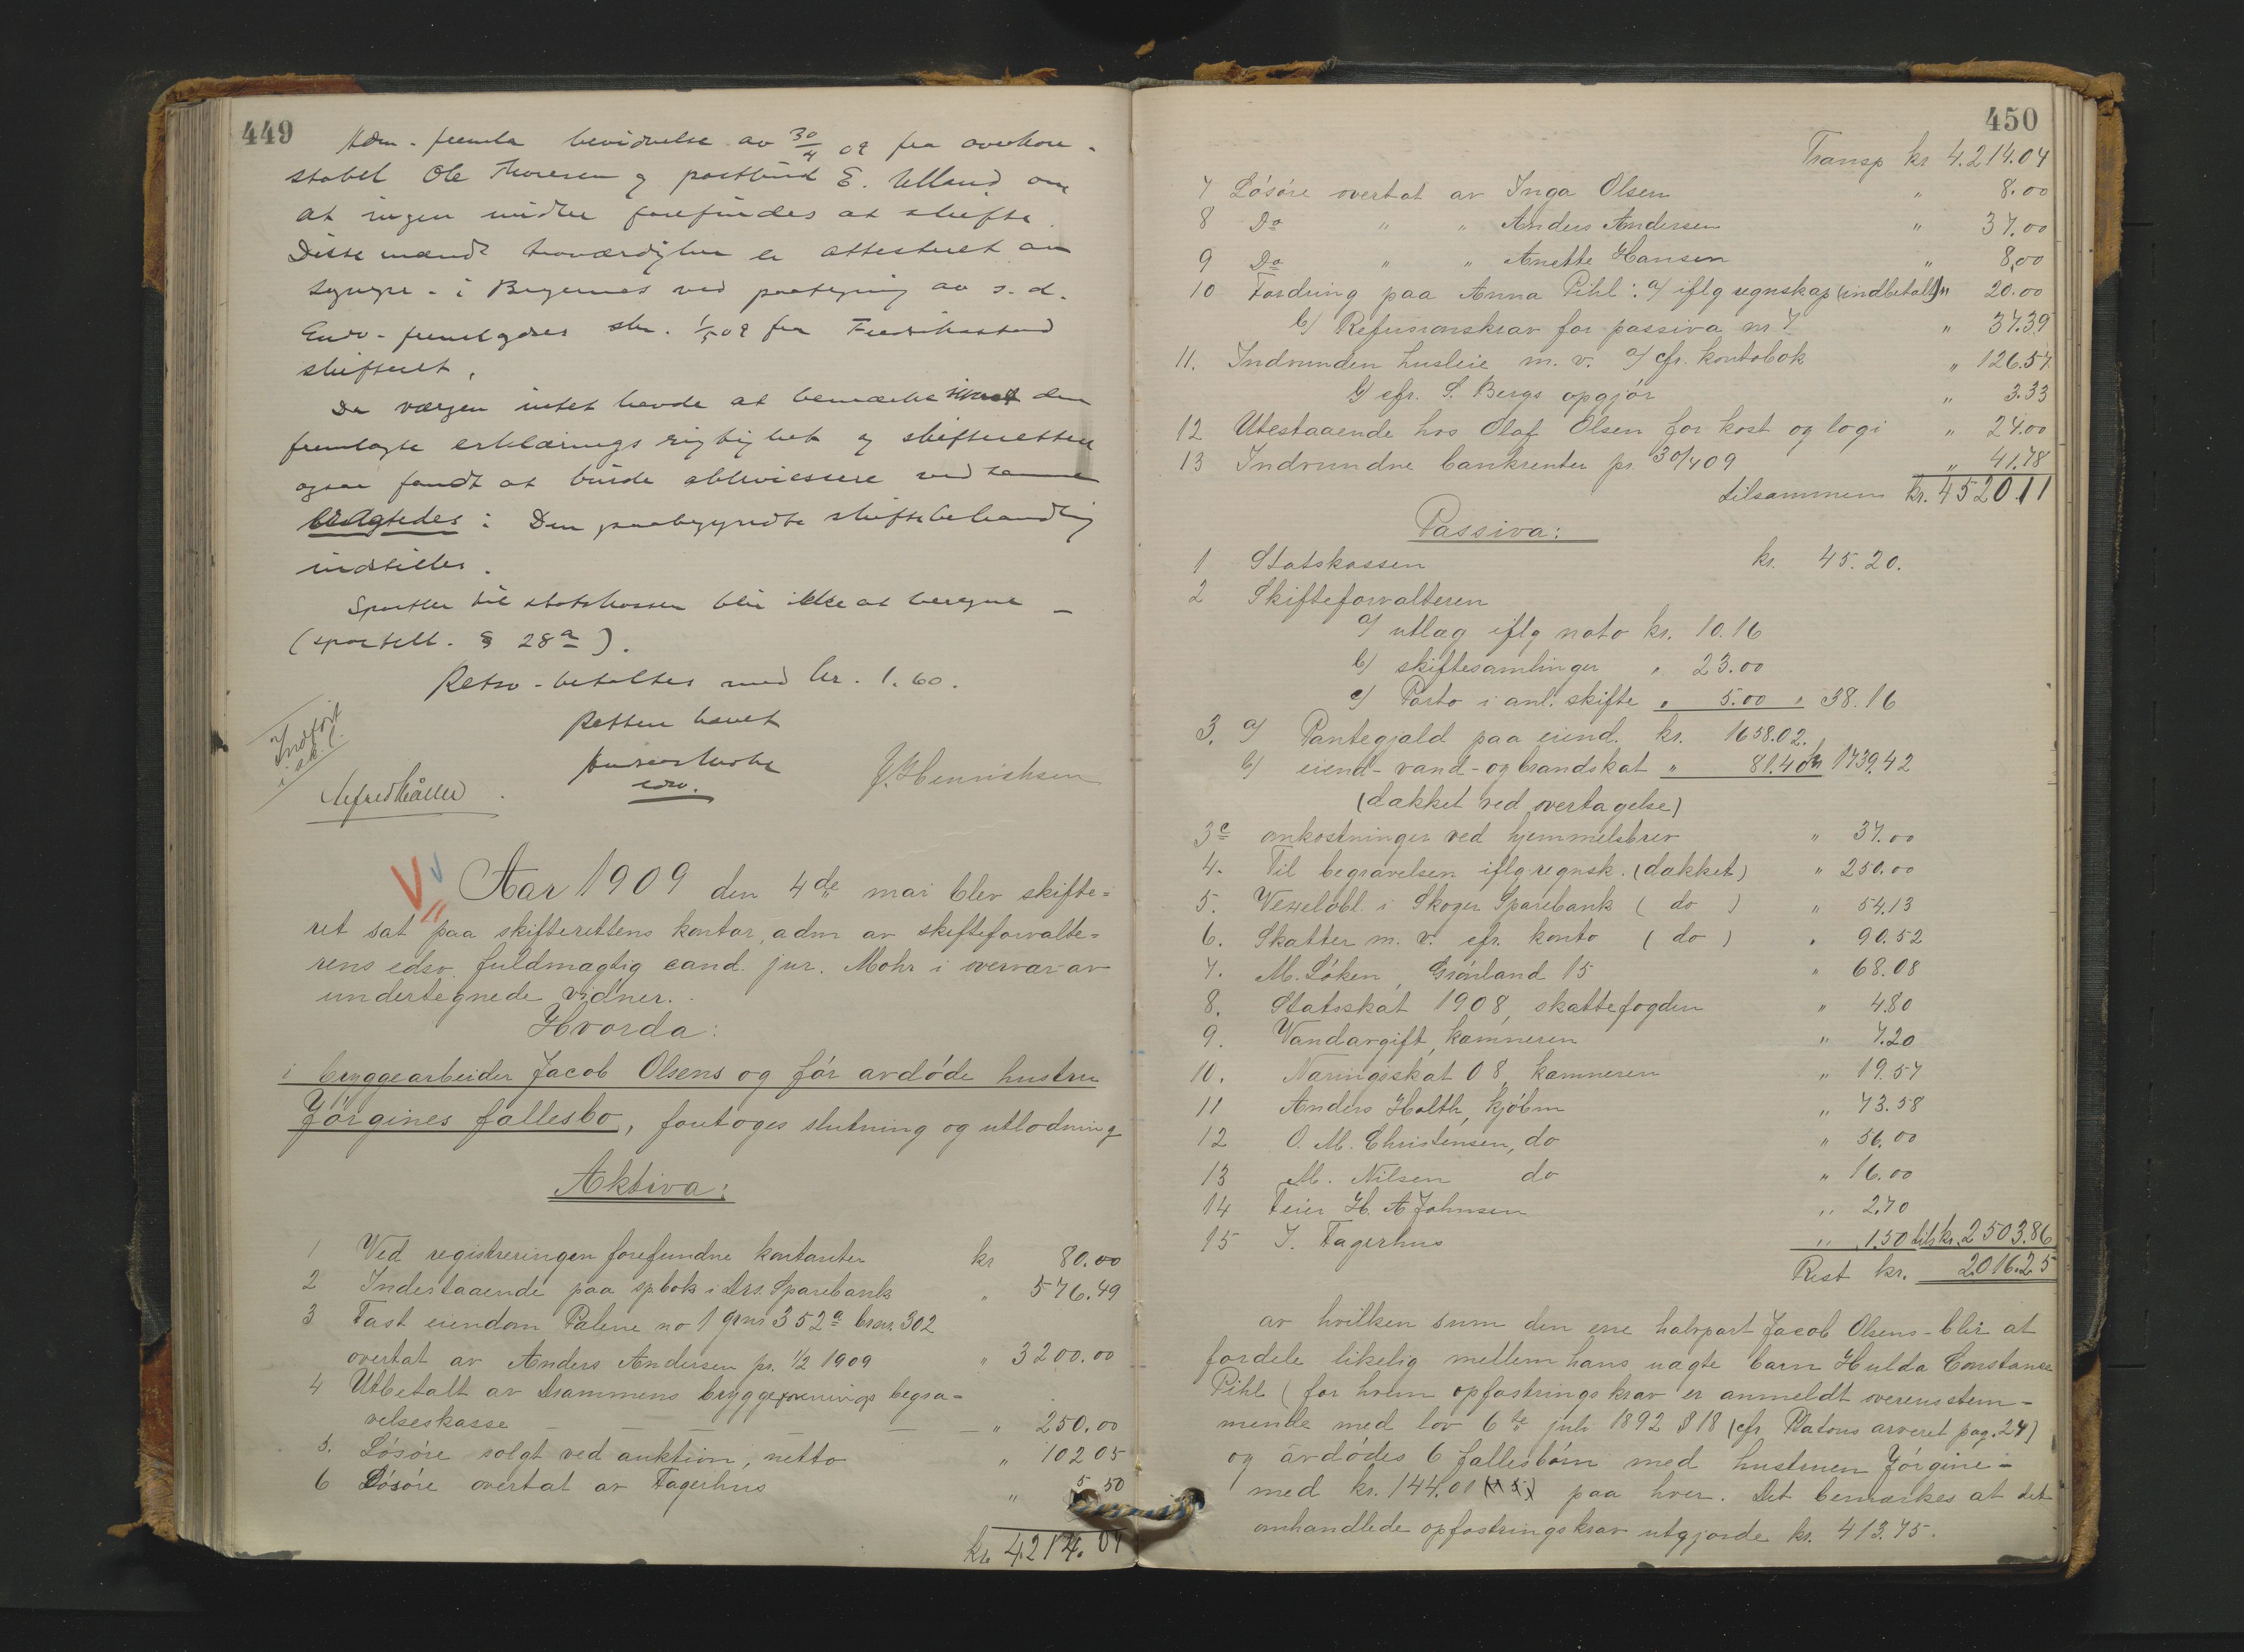 449
Adm. fremla bevidnelse av 30/4 09 fra overkon-
stabel Ole Thoresen og postbud E. Ulland om
at ingen midler forefindes at skifte.
Disse mænds troværdighet er attesteret av
i ved paategning av s. d.
Endv. fremlagdes skr. 1/5 09 fra Fredrikstad
skifteret.
Da værgen intet havde at bemærke imot den
fremlagte erklærings rigtighet og skifteretten
ogsaa fandt at burde ved samme
besluttedes: Den paabegyndte skiftebehandling
indstilles.
Sportler til statskassen blir ikke at beregne –
(sportell. § 28a).
Retsv. betaltes med kr. 1.60.
Retten hævet
Indført
i sk. C.
edsv.
J. Henrichsen
Aar 1909 den 4de mai blev skifte=
ret sat paa skifterettens kontor, adm av skifteforvalte=
rens edsv. fuldmægtig cand. jur. Mohr i overvær av
undertegnede vidner.
Hvorda:
i bryggearbeider Jacob Olsens og før avdøde hustru
Jørgines fællesbo, foretoges slutning og utlodning
Aktiva:
1 Ved registreringen forefundne kontanter kr 80.00
2 Indestaaende paa spbok i Drs. Sparebank " 576.49
3 Fast eiendom Palene no 1 grns 352a brnr. 302
overtat av Anders Andersen pr. 1/2 1909 " 3200.00
4 Utbetalt av Drammens bryggeforenings begra-
velseskasse — — — — " 250.00
5. Løsøre solgt ved auktion, netto " 102 05
6 Løsøre overtat av Fagerhus " 5 50
kr. 4214.04
450
Transp kr 4.214.04
7 Løsøre overtat av Inga Olsen " 8.00
8 Do " " Anders Andersen " 37.00
9 Do " " Anette Hansen " 8,00
10 Fordring paa Anna Pihl: a/ iflg regnskap (indbetalt) " 20.00
b/ Refusionskrav for passiva nr 7 " 37.39
11. Indvunden husleie m. v. a/ cfr. kontobok " 126.57
b/ cfr. S. Bergs opgjør " 3.33
12 Utestaaende hos Olaf Olsen for kost og logi " 24.00
13 Indvundne bankrenter pr. 30/4 09 " 41.78
tilsammen kr. 4520.11
Passiva:
1 Statskassen kr. 45.20.
2 Skifteforvalteren
a/ utlæg iflg nota kr. 10.16
b/ skiftesamlinger " 23.00
c/ Porto i anl. skifte " 5.00 " 38.16
3. a/ Pantegjæld paa eiend. kr. 1658.02.
b/ eiend- vand- og brandskat " 81.40 kr 1739.42
(dækket ved overtagelse)
3c omkostninger ved hjemmelsbrev " 37.00
4. Til begravelsen iflg regnsk. (dækket) " 250.00
5. Vexelobl. i Skoger Sparebank ( do ) " 54.13
6. Skatter m. v. cfr. konto ( do ) " 90.52
7. M. Løken, Grønland 15 " 68.08
8. Statsskat 1908, skattefogden " 4.80
9. Vandavgift, kæmneren " 7.20
10. Næringsskat 08, kæmneren " 19.57
11 Anders Holth, kjøbm " 73.58
12 O. M. Christensen, do " 56.00
13 M. Nilsen do " 16.00
14 Feier H. A Johnsen " 2.70
15 J. Fagerhus " 1.50 tils kr. 2503.86
Rest kr. 2016.25
av hvilken sum den ene halvpart Jacob Olsens – blir at
fordele likelig mellem hans uægte barn Hulda Constance
Pihl (for hvem opfostringskrav er anmeldt overensstem-
mende med lov 6te juli 1892 § 18 (cfr Platous arveret pag. 24)
og avdødes 6 fællesbørn med hustruen Jørgine –
med kr. 144.01 paa hver. Det bemærkes at det
omhandlede opfostringskrav utgjorde kr. 413.75.